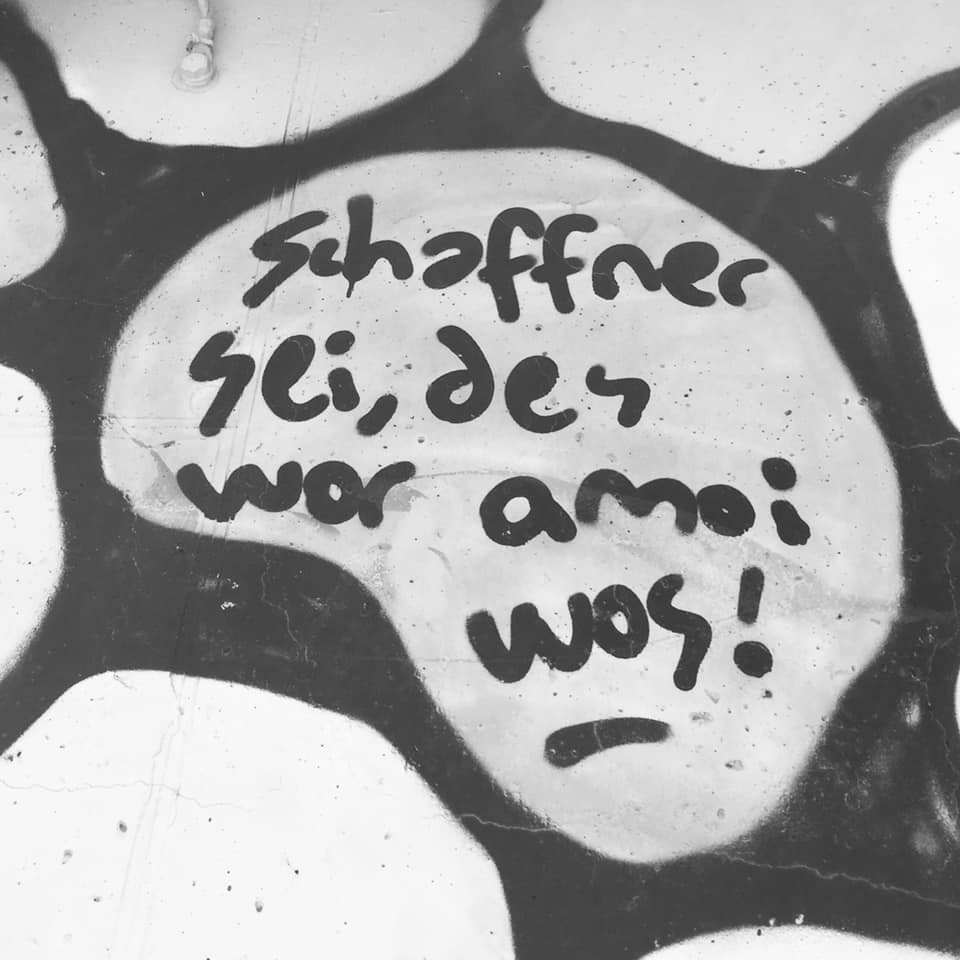 schaffner
sei, des
wor amoi
wos!